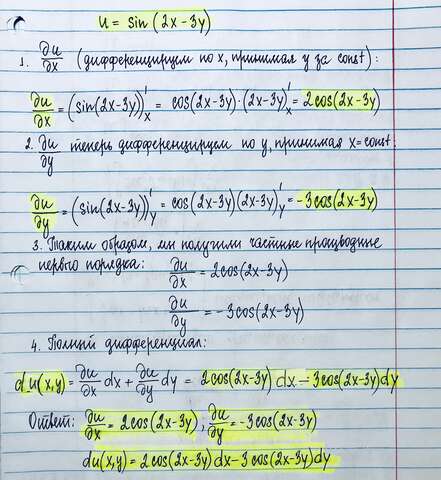 u = sin (2x - 3y)
1. ∂u/∂x (дифференцируем по x, принимая y за const):
∂u/∂x = (sin(2x-3y))'ₓ = cos(2x-3y)·(2x-3y)'ₓ = 2cos(2x-3y)
2. ∂u/∂y теперь дифференцируем по y, принимая x=const:
∂u/∂y = (sin(2x-3y))'ᵧ = cos(2x-3y)(2x-3y)'ᵧ = -3cos(2x-3y)
3. Таким образом, мы получили частные производные
первого порядка: ∂u/∂x = 2cos(2x-3y)
∂u/∂y = -3cos(2x-3y)
4. Полный дифференциал:
du(x,y) = ∂u/∂x dx + ∂u/∂y dy = 2cos(2x-3y)dx - 3cos(2x-3y)dy
Ответ: ∂u/∂x = 2cos(2x-3y); ∂u/∂y = -3cos(2x-3y)
du(x,y) = 2cos(2x-3y)dx - 3cos(2x-3y)dy